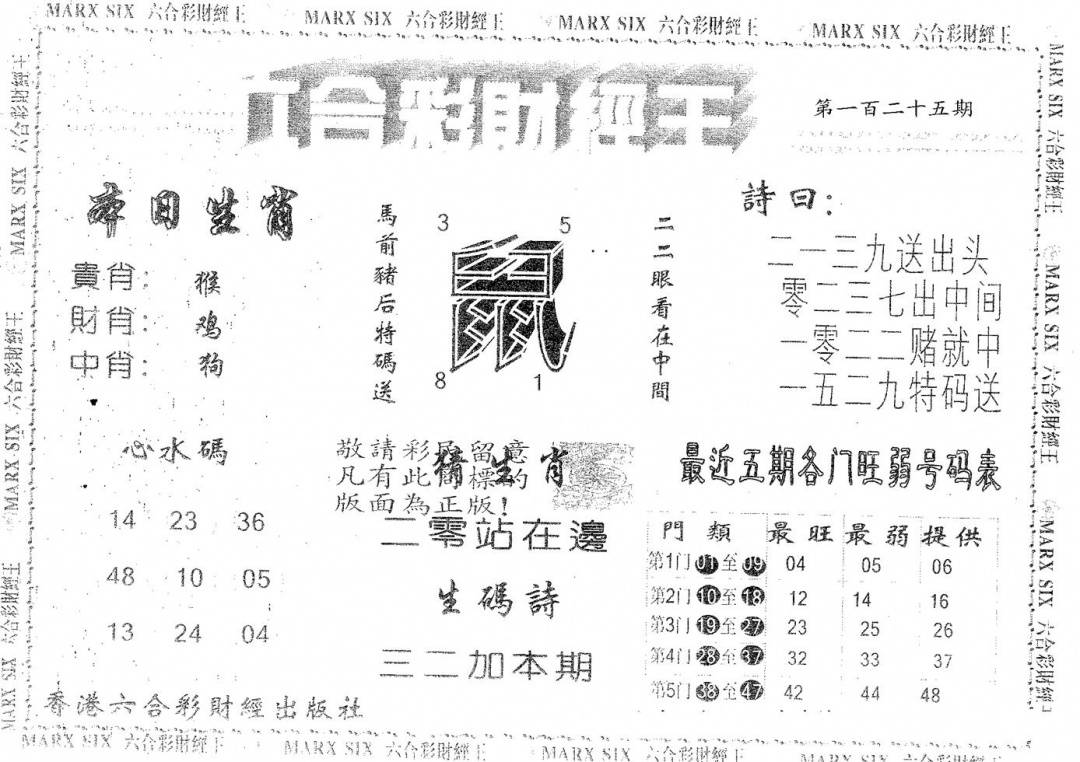 MARX SIX 六合彩財經王 MARX SIX 六合彩財經王 MARX SIX 六合彩財經王 MARX SIX 六合彩財經王
六合彩財經王
第一百二十五期
本日生肖
貴肖：猴
財肖：鸡
中肖：狗
馬前豬后特碼送
3 5
鼠
8 1
二二眼看在中間
詩曰：
二一三九送出头
零二三七出中间
一零二二赌就中
一五二九特码送
心水碼
14 23 36
48 10 05
13 24 04
敬請彩民留意
凡有此商標的
版面為正版！
猜生肖
二零站在邊
生碼詩
三二加本期
最近五期各门旺弱号码表
門類 最旺 最弱 提供
第1门 01至09 04 05 06
第2门 10至18 12 14 16
第3门 19至27 23 25 26
第4门 28至37 32 33 37
第5门 38至47 42 44 48
香港六合彩財經出版社
MARX SIX 六合彩財經王 MARX SIX 六合彩財經王 MARX SIX 六合彩財經王 MARX SIX 六合彩財經王
MARX SIX 六合彩財經王 MARX SIX 六合彩財經王 MARX SIX 六合彩財經王
MARX SIX 六合彩財經王 MARX SIX 六合彩財經王 MARX SIX 六合彩財經王